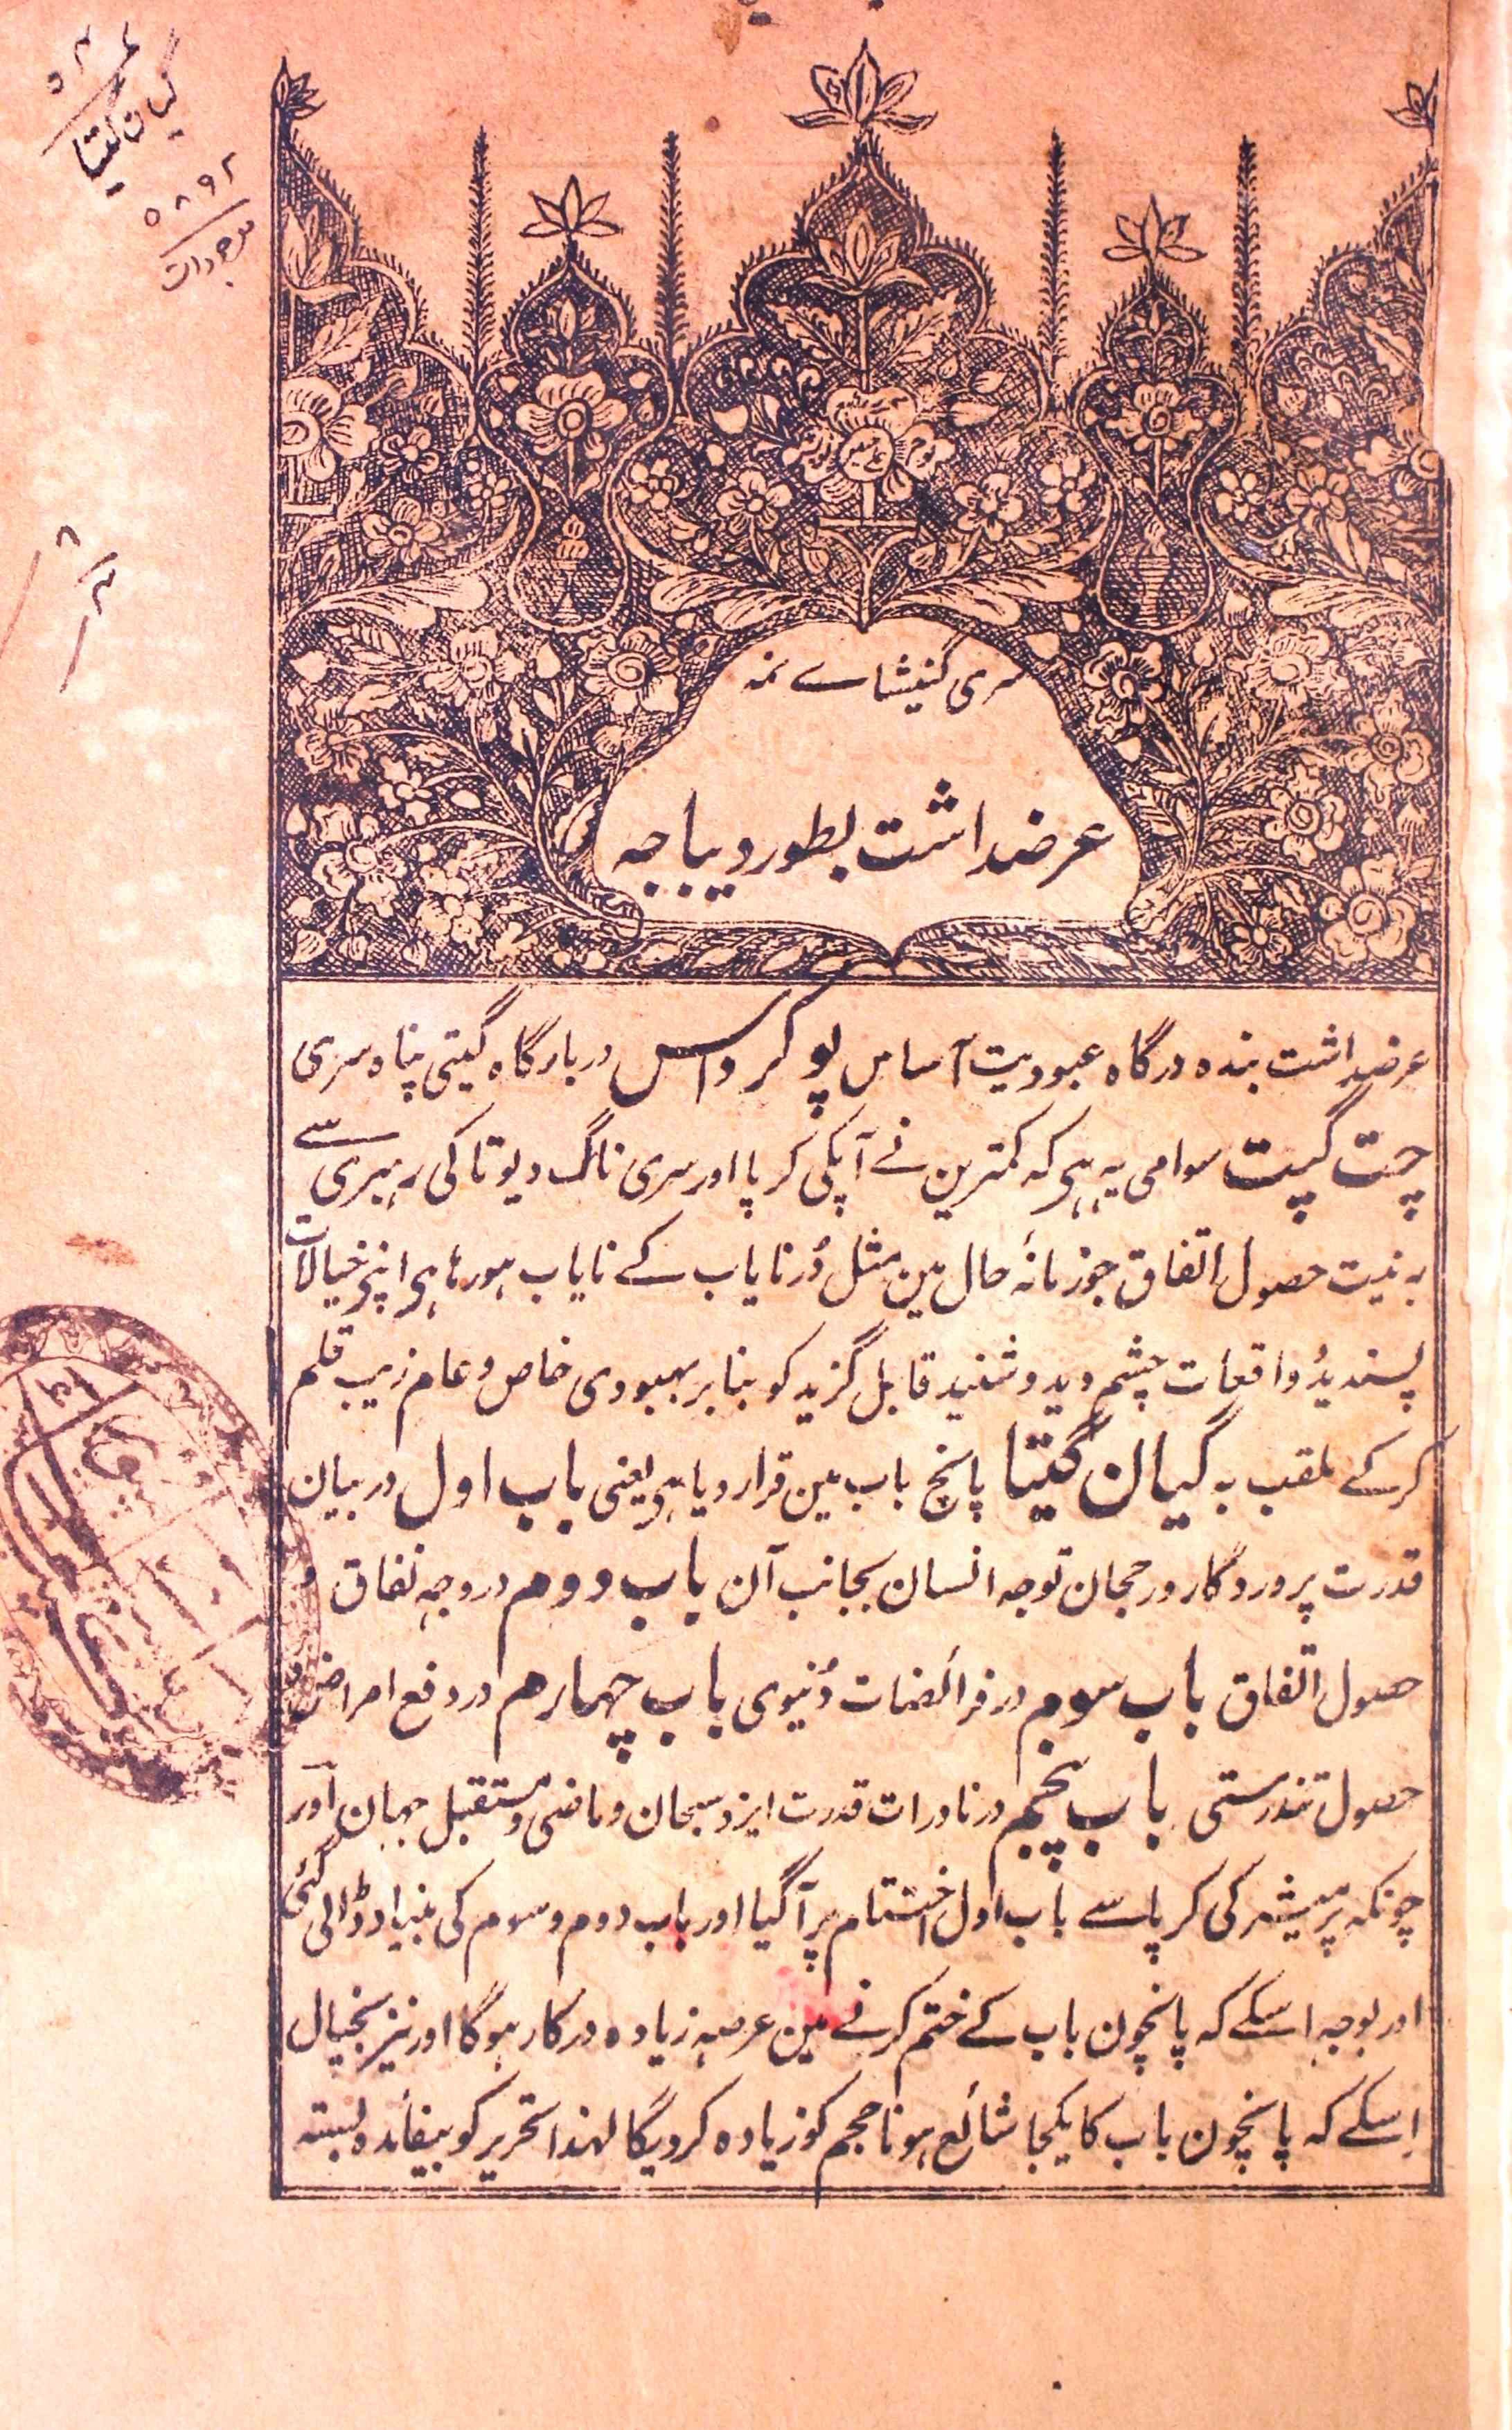 گیان گیتا
۵۸۹۲
سری گنیشاے نمہ
عرضداشت بطور دیباچہ
عرضداشت بندہ درگاہ عبودیت آساس پوکرداس دربارگاہ گیتی پناہ سری
چت گپت سوامی یہ ہی کہ کمترین نے آپکی کرپا اور سری ناگ دیوتا کی رہبری سے
بہ نیت حصول اتفاق جو زمانۂ حال مین مثل دُر نایاب کے نایاب ہو رہا ہی اپنے خیالات
پسندیدۂ واقعات چشم دید و شنید قابل گزید کو بنابر بہبودی خاص و عام زیب قلم
کرکے ملقب بہ گیان گیتا پانچ باب مین قرار دیا ہی یعنی باب اول در بیان
قدرت پروردگار و رحجان توجہ انسان بجانب آن باب دوم در وجہ نفاق و
حصول اتفاق باب سوم در فرائضات دُنیوی باب چہارم در دفع امراض و
حصول تندرستی باب پنجم در نادرات قدرت ایزد سبحان و ماضی و مستقبل جہان اور
چونکہ پرمیشر کی کرپا سے باب اول اختتام پر آگیا اور باب دوم و سوم کی بنیاد ڈالی گئی
اور بوجہ اسکے کہ پانچون باب کے ختم کرنے مین عرصہ زیادہ درکار ہوگا اور نیز بخیال
اِسکے کہ پانچون باب کا یکجا شائع ہونا حجم کو زیادہ کر دیگا لہذا تحریر کو بیفائدہ بستہ